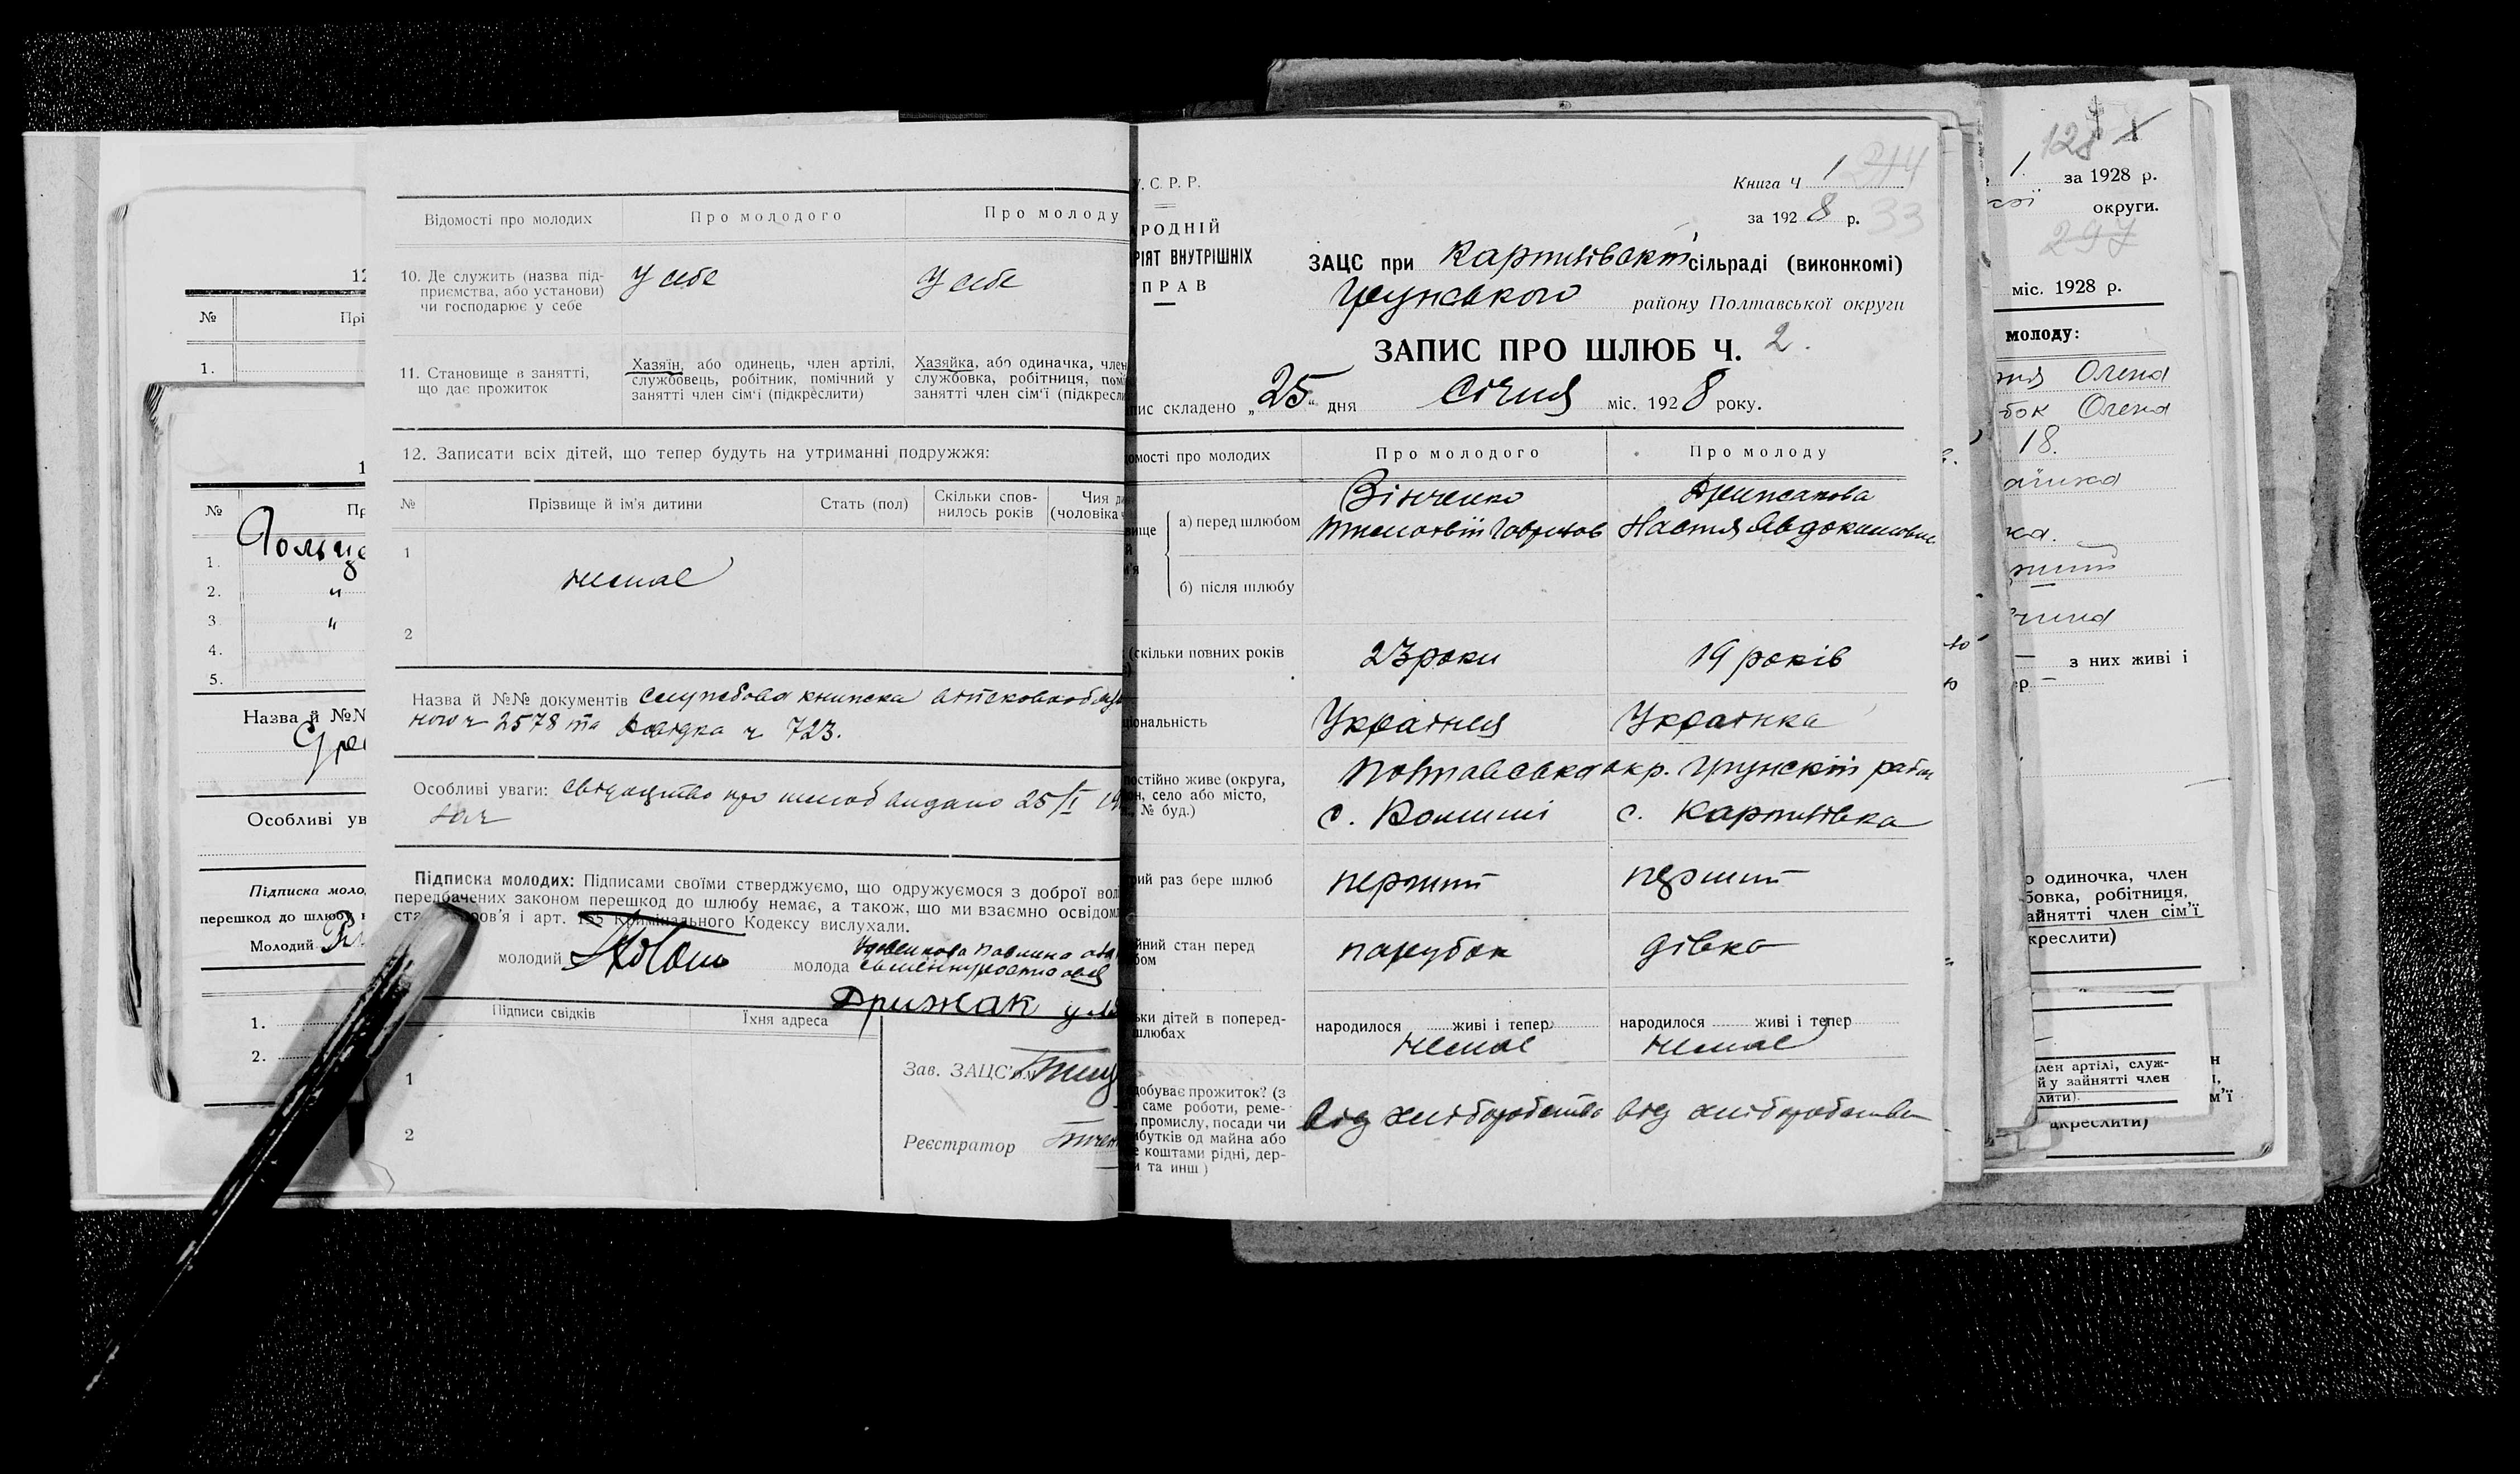 12
№
Прі
1.
1
№
Пр
1.
2. "
3 "
4.
5.
Назва й №№
Особливі ув
Підписка моло
перешкод до шлюбу н
Молодий
1.
2.
Відомості про молодих
Про молодого
Про молоду
10. Де служить (назва під-
приємства, або установи)
чи господарює у себе
У себе
У себе
11. Становище в занятті,
що дає прожиток
Хазяїн, або одинець, член артілі,
службовець, робітник, помічний у
занятті член сім'ї (підкреслити)
Хазяйка, або одиначка, член
службовка, робітниця, помі
занятті член сім'ї (підкресли
12. Записати всіх дітей, що тепер будуть на утриманні подружжя:
№
Прізвище й ім'я дитини
Стать (пол)
Скільки спов-
нилось років
Чия д
(чоловіка ч
1
немає
2
Назва й №№ документів службова книжка
ч 2578 та ч 723.
Особливі уваги: свідоцтво про шлюб видано 25/I 19
Підписка молодих: Підписами своїми стверджуємо, що одружуємося з доброї вол
передбачених законом перешкод до шлюбу немає, а також, що ми взаємно освідомл
ста ров'я і арт. 155 Кримінального Кодексу вислухали.
молодий
молода
Дрижак
Підписи свідків
Їхня адреса
1
2
Зав. ЗАЦС'ом
Реєстратор
У. С. Р. Р.
РОДНІЙ
РІЯТ ВНУТРІШНІХ
ПРАВ
Книга Ч 1 244
за 1928 р. 33
ЗАЦС при Картилівській сільраді (виконкомі)
Грунського району Полтавської округи
ЗАПИС ПРО ШЛЮБ Ч. 2.
пис складено „25“ дня Січня міс. 1928 року.
омості про молодих
Про молодого
Про молоду
вище
а) перед шлюбом
Зінченко
Дрижакова
Настя Явдокимовна
б) після шлюбу
(скільки повних років
23 роки
19 років
ціональність
Українця
Українка
постійно живе (округа,
он, село або місто,
№ буд.)
Полтавська окр. Грунській район
с. Комиші
с. Картилівка
рий раз бере шлюб
перший
перший
йний стан перед
бом
парубок
дівка
ьки дітей в поперед-
шлюбах
народилося живі і тепер
немає
народилося живі і тепер
немає
добуває прожиток? (з
саме роботи, реме-
промислу, посади чи
ибутків од майна або
е коштами рідні, дер-
и та инш)
від хліборобства
від хліборобства
128
1. за 1928 р.
округи.
297
міс. 1928 р.
молоду:
Олена
бок Олена
18.
з них живі і
о одиночка, член
бовка, робітниця,
айнятті член сім'ї
креслити)
лен артілі, служ-
й у зайнятті член
лити).
м'ї
дкреслити)